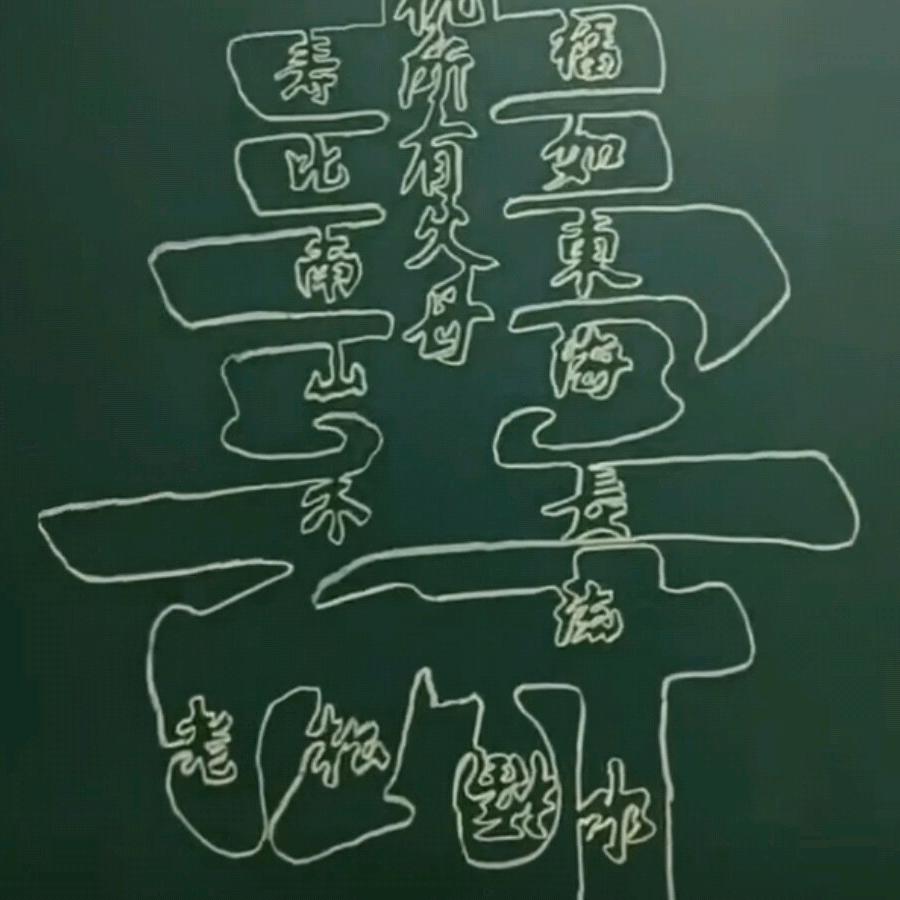 福如東海長流水
祝所有父母
寿比南山不老松